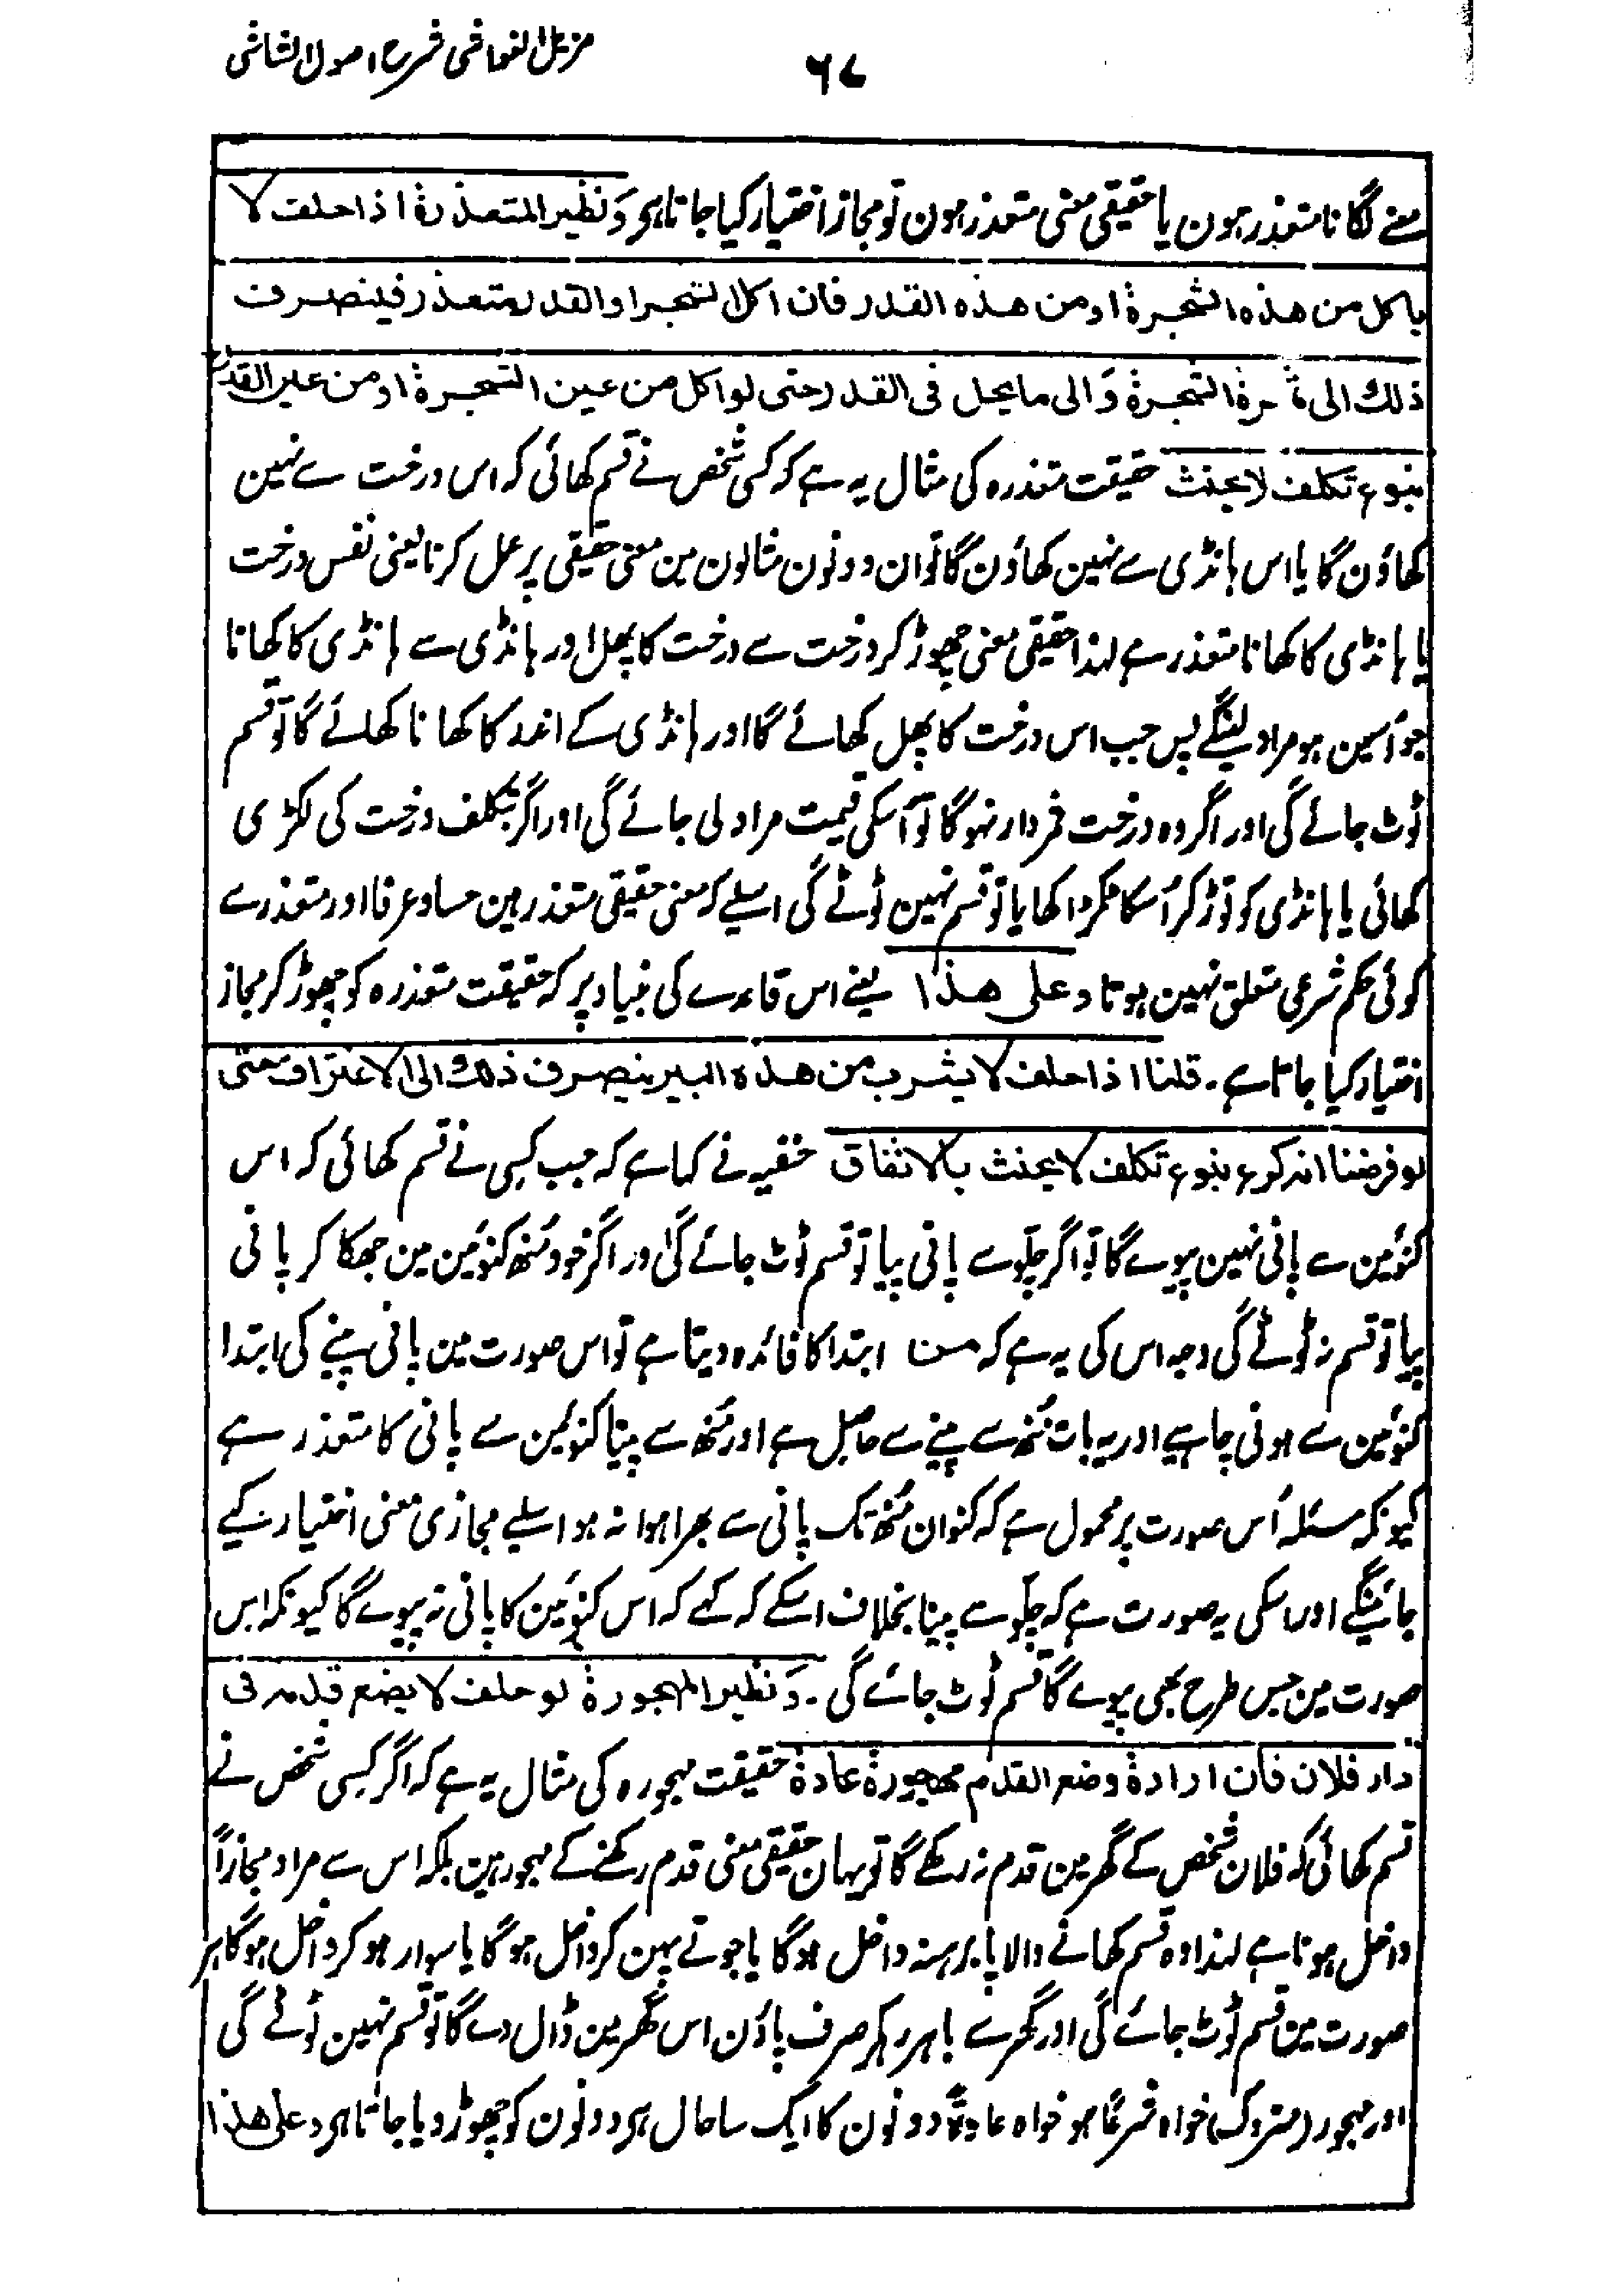 مزیل الغواشی شرح اصول الشاشی
۶۷
معنے لگانا متعذر ہون یا حقیقی معنی متعذر ہون تو مجاز اختیار کیا جاتا ہی وَنظیر المتعذرۃ اذا حلف لا
یاکل من ھذہ الشجرۃ اومن ھذہ القدر فان اکل الشجر او القدر متعذر فینصرف
ذلك الی ثمرۃ الشجرۃ وَالی ما یحل فی القدر حتی لو اکل من عین الشجرۃ اومن عین القدر
بنوع تکلف لا یحنث حقیقت متعذرہ کی مثال یہ ہے کہ کسی شخص نے قسم کھائی کہ اس درخت سے نہین
کھاؤن گا یا اس ہانڈی سے نہین کھاؤن گا تو ان دونون مثالون مین معنی حقیقی پر عمل کرنا یعنی نفس درخت
یا ہانڈی کا کھانا متعذر ہے لہذا حقیقی معنی چھوڑ کر درخت سے درخت کا پھل اور ہانڈی سے ہانڈی کا کھانا
جو اُسمین ہو مراد لینگے پس جب اس درخت کا پھل کھائے گا اور ہانڈی کے اندر کا کھانا کھائے گا تو قسم
ٹوٹ جائے گی اور اگر وہ درخت ثمردار نہوگا تو اُسکی قیمت مراد لی جائے گی اور اگر بتکلف درخت کی لکڑی
کھائی یا ہانڈی کو توڑ کر اُسکا ٹکڑا کھایا تو قسم نہین ٹوٹے گی اسلیے کہ معنی حقیقی متعذر ہین حسا و عرفا اور متعذر سے
کوئی حکم شرعی متعلق نہین ہوتا وعلی ھذا یعنے اس قاعدے کی بنیاد پر کہ حقیقت متعذرہ کو چھوڑ کر مجاز
اختیار کیا جاتا ہے۔ قلنا اذا حلف لا یشرب من ھذہ البیر ینصرف ذلك الی الاغتراف حتی
لو فرضنا انہ کرع بنوع تکلف لا یحنث بالاتفاق حنفیہ نے کہا ہے کہ جب کسی نے قسم کھائی کہ اس
کنوئین سے پانی نہین پیوے گا تو اگر چلّو سے پانی پیا تو قسم ٹوٹ جائے گی اور اگر خود مُنھ کنوئین مین جھکا کر پانی
پیا تو قسم نہ ٹوٹے گی وجہ اس کی یہ ہے کہ من ابتدا کا فائدہ دیتا ہے تو اس صورت مین پانی پینے کی ابتدا
کنوئین سے ہونی چاہیے اور یہ بات مُنھ سے پینے سے حاصل ہے اور مُنھ سے پینا کنوئین سے پانی کا متعذر ہے
کیونکہ مسئلہ اُس صورت پر محمول ہے کہ کنوان مُنھ تک پانی سے بھرا ہوا نہ ہو اسلیے مجازی معنی اختیار کیے
جائینگے اور اسکی یہ صورت ہے کہ چلّو سے پینا بخلاف اسکے کہ کہے کہ اس کنوئین کا پانی نہ پیوے گا کیونکہ اس
صورت مین جس طرح بھی پیوے گا قسم ٹوٹ جائے گی۔ وَنظیر المہجورۃ لو حلف لا یضع قدمہ فی
دار فلان فان ارادۃ وضع القدم مہجورۃ عادۃ حقیقت مہجورہ کی مثال یہ ہے کہ اگر کسی شخص نے
قسم کھائی کہ فلان شخص کے گھر مین قدم نہ رکھے گا تو یہان حقیقی معنی قدم رکھنے کے مہجور ہین بلکہ اس سے مراد مجازاً
داخل ہونا ہے لہذا وہ قسم کھانے والا پا برہنہ داخل ہوگا یا جوتے پہن کر داخل ہوگا یا سوار ہو کر داخل ہوگا ہر
صورت مین قسم ٹوٹ جائے گی اور گھر سے باہر رہکر صرف پاؤن اس گھر مین ڈال دے گا تو قسم نہین ٹوٹے گی
اور مہجور (متروک) خواہ شرعًا ہو خواہ عادۃً دونون کا ایک سا حال ہی دونون کو چھوڑ دیا جاتا ہی وعلی ھذا